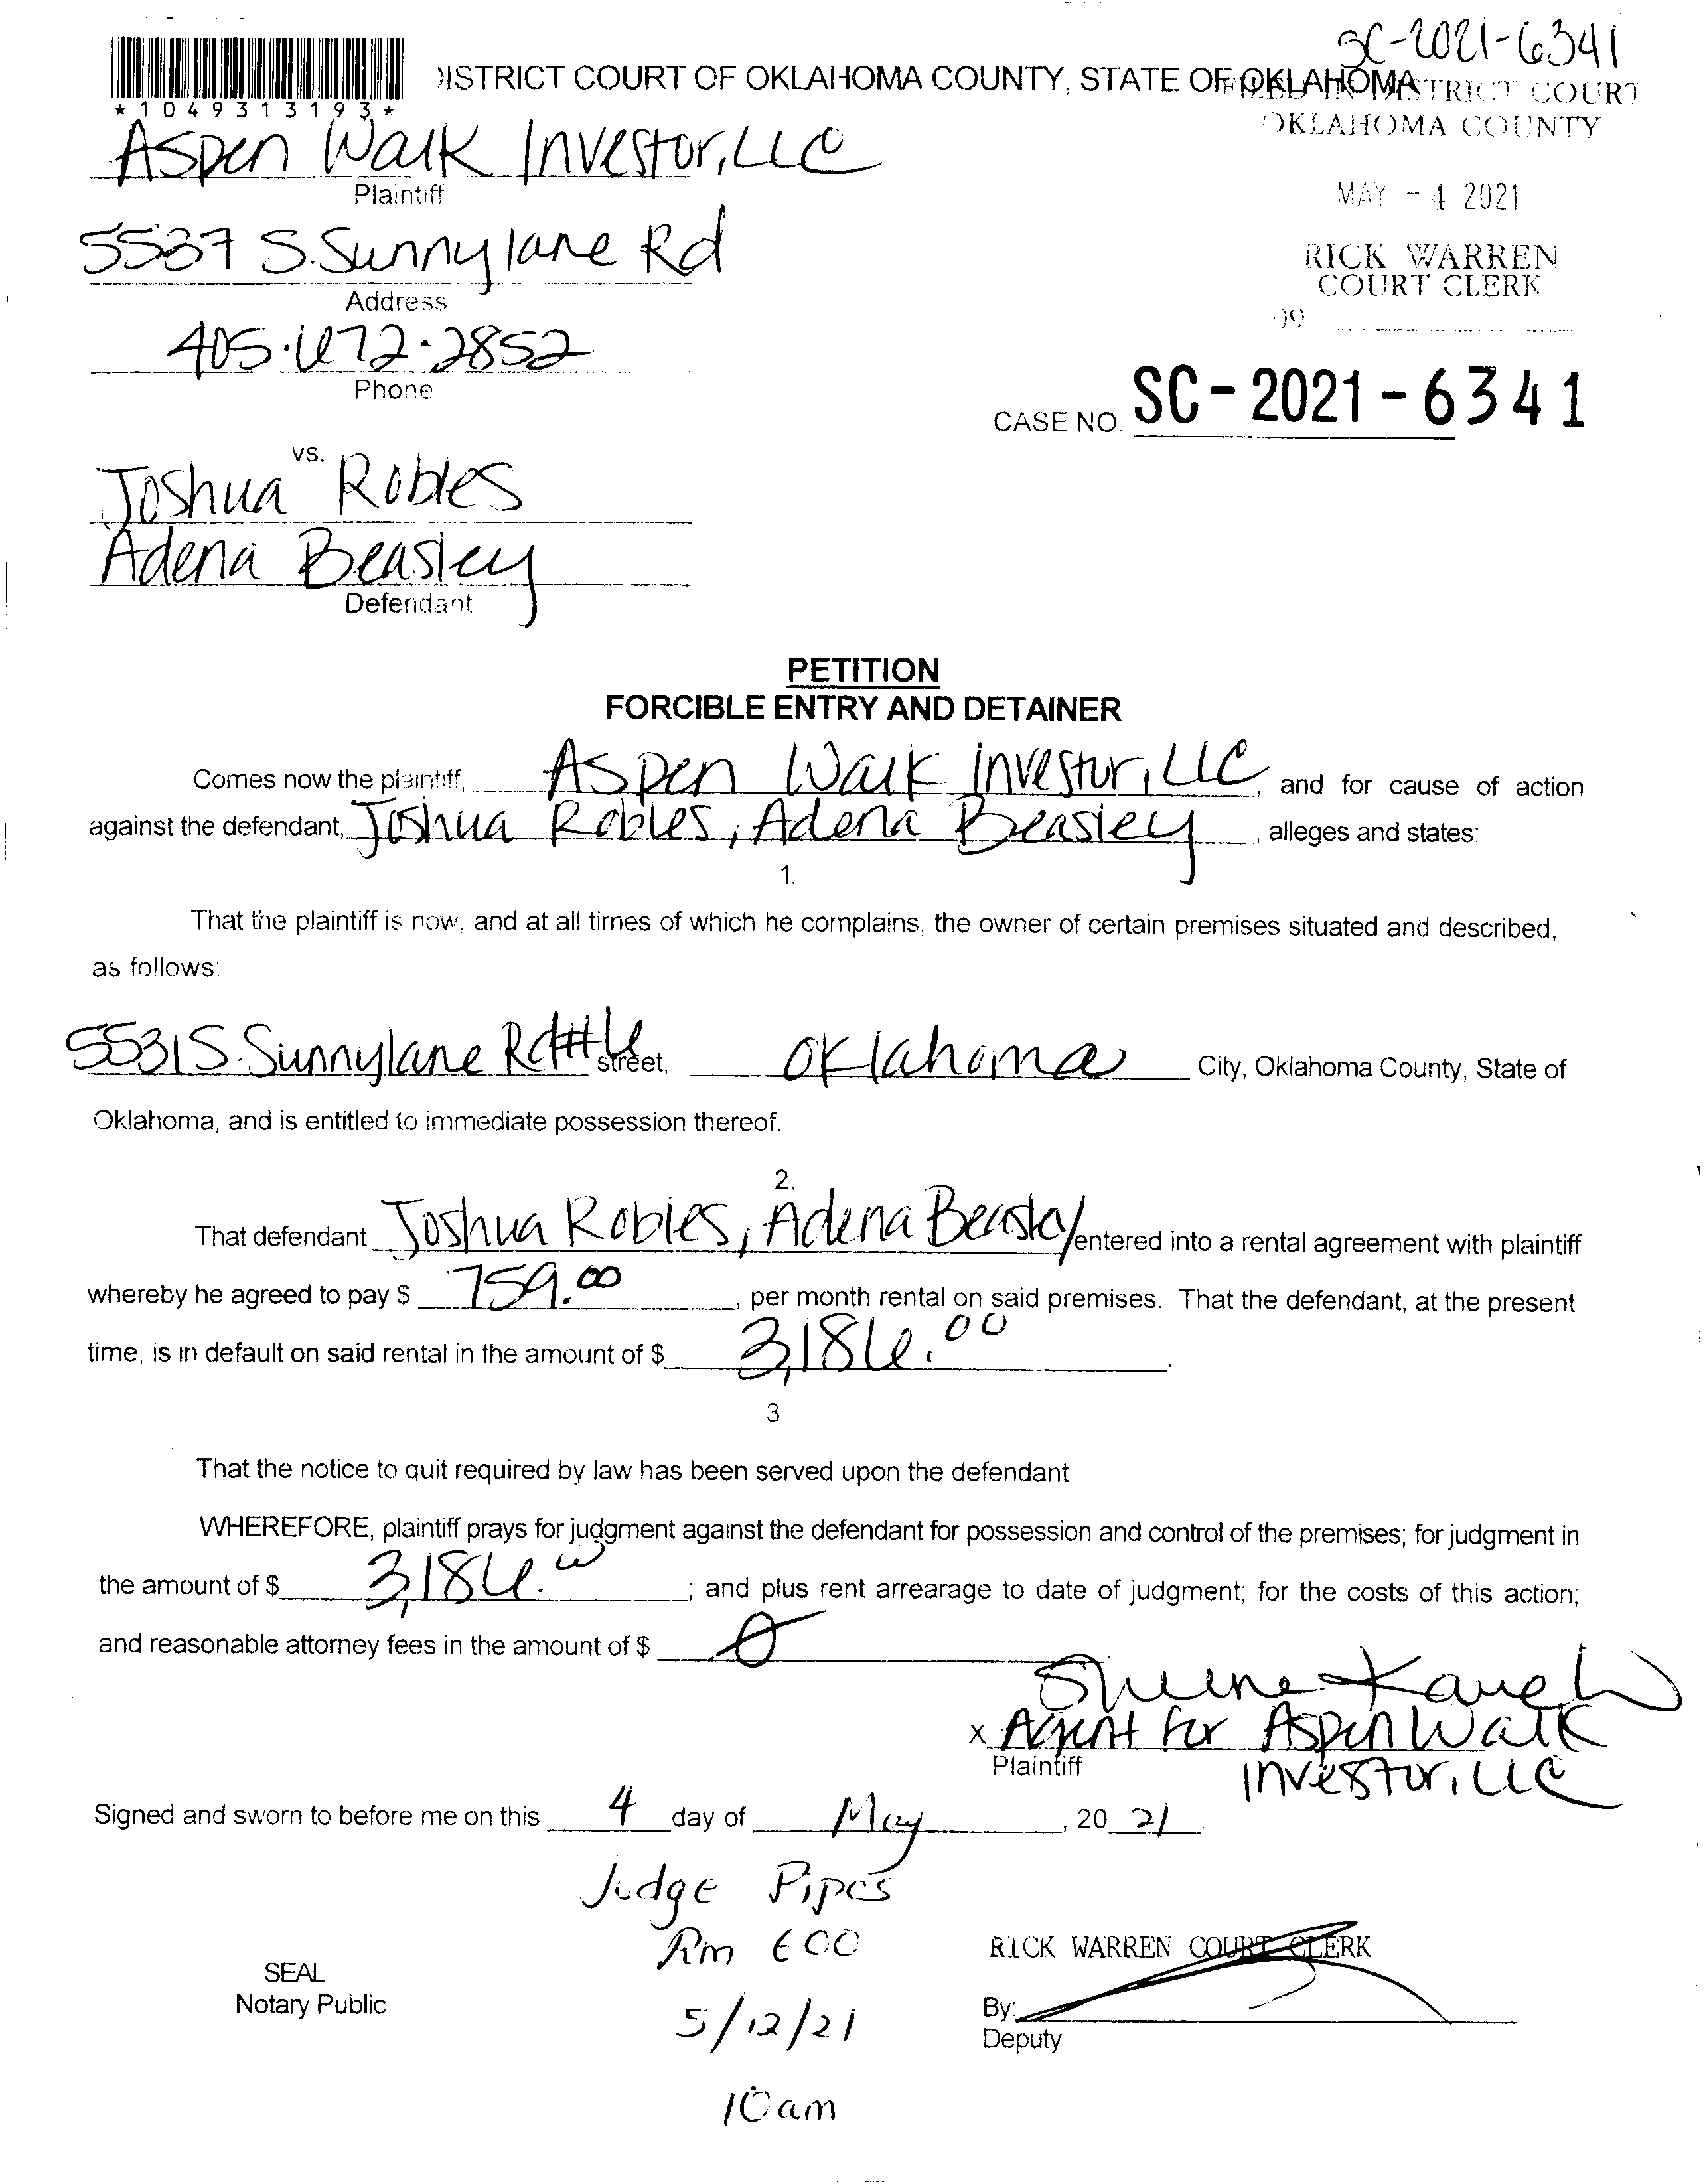 SC-2021-6341
DISTRICT COURT OF OKLAHOMA COUNTY, STATE OF OKLAHOMA
FILED IN DISTRICT COURT
OKLAHOMA COUNTY
*1049313193*
Aspen Walk Investor, LLC
Plaintiff
MAY - 4 2021
5537 S. Sunnylane Rd
Address
RICK WARREN
COURT CLERK
405.672.2852
Phone
CASE NO. SC-2021-6341
vs.
Joshua Robles
Adena Beasley
Defendant
PETITION
FORCIBLE ENTRY AND DETAINER
Comes now the plaintiff, Aspen Walk Investor, LLC, and for cause of action
against the defendant, Joshua Robles, Adena Beasley, alleges and states:
1.
That the plaintiff is now, and at all times of which he complains, the owner of certain premises situated and described,
as follows:
5531 S. Sunnylane Rd street, Oklahoma City, Oklahoma County, State of
Oklahoma, and is entitled to immediate possession thereof.
2.
That defendant Joshua Robles, Adena Beasley entered into a rental agreement with plaintiff
whereby he agreed to pay $ 759.00, per month rental on said premises. That the defendant, at the present
time, is in default on said rental in the amount of $ 3,186.00.
3
That the notice to quit required by law has been served upon the defendant.
WHEREFORE, plaintiff prays for judgment against the defendant for possession and control of the premises; for judgment in
the amount of $ 3,186.00; and plus rent arrearage to date of judgment; for the costs of this action;
and reasonable attorney fees in the amount of $ 0
x Agent for Aspen Walk
Plaintiff
Investor, LLC
Signed and sworn to before me on this 4 day of May, 2021
Judge Pipes
Rm 600
RICK WARREN COURT CLERK
SEAL
Notary Public
5/12/21
By:
Deputy
10am